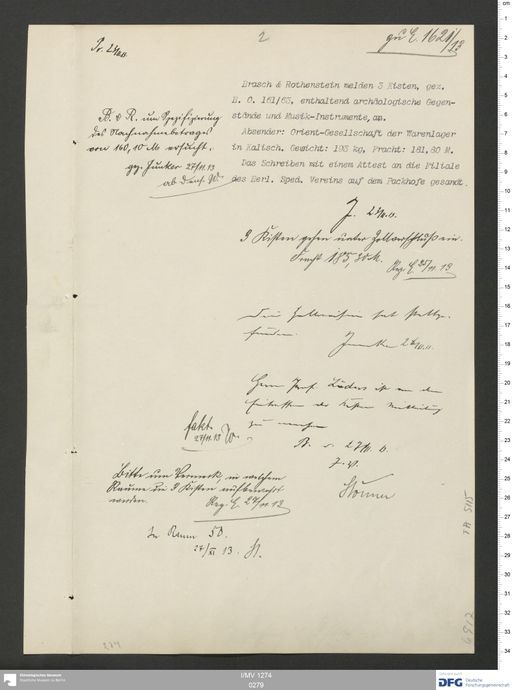 zu E. 1621/13
2
Brasch & Rothenstein melden 3 Kisten, gez.
B. O. 161/63, enthaltend archäologische Gegen-
stände und Musik-Instrumente, an.
Absender: Orient-Gesellschaft der Warenlager
in Kalisch. Gewicht: 193 kg, Fracht: 181.80 M.
Das Schreiben mit einem Attest an die Filiale
des Berl. Sped. Vereins auf dem Packhofe gesandt.
B. & R. um Spezifizierung
des Nachnahmebetrages
von 160,10 M ersucht.
gez. Junker 27/11.13
3 Kisten gehen unter Zollverschluß ein.
Fracht 185,30 M.
Reg. E. 25/11 13
Die Zollrevision hat stattge-
funden.
Herrn Prof. Lüders ist von dem
Eintreffen der Kisten Mitteilung
zu machen
fakt.
27/11.13
Bitte um Vermerk, in welchem
Raume die 3 Kisten aufbewahrt
werden.
Reg. E. 27/11 13
In Raum 50.
27/XI 13. St.
Ethnologisches Museum
Staatliche Museen zu Berlin
I/MV 1274
0279
DFG
Deutsche
Forschungsgemeinschaft